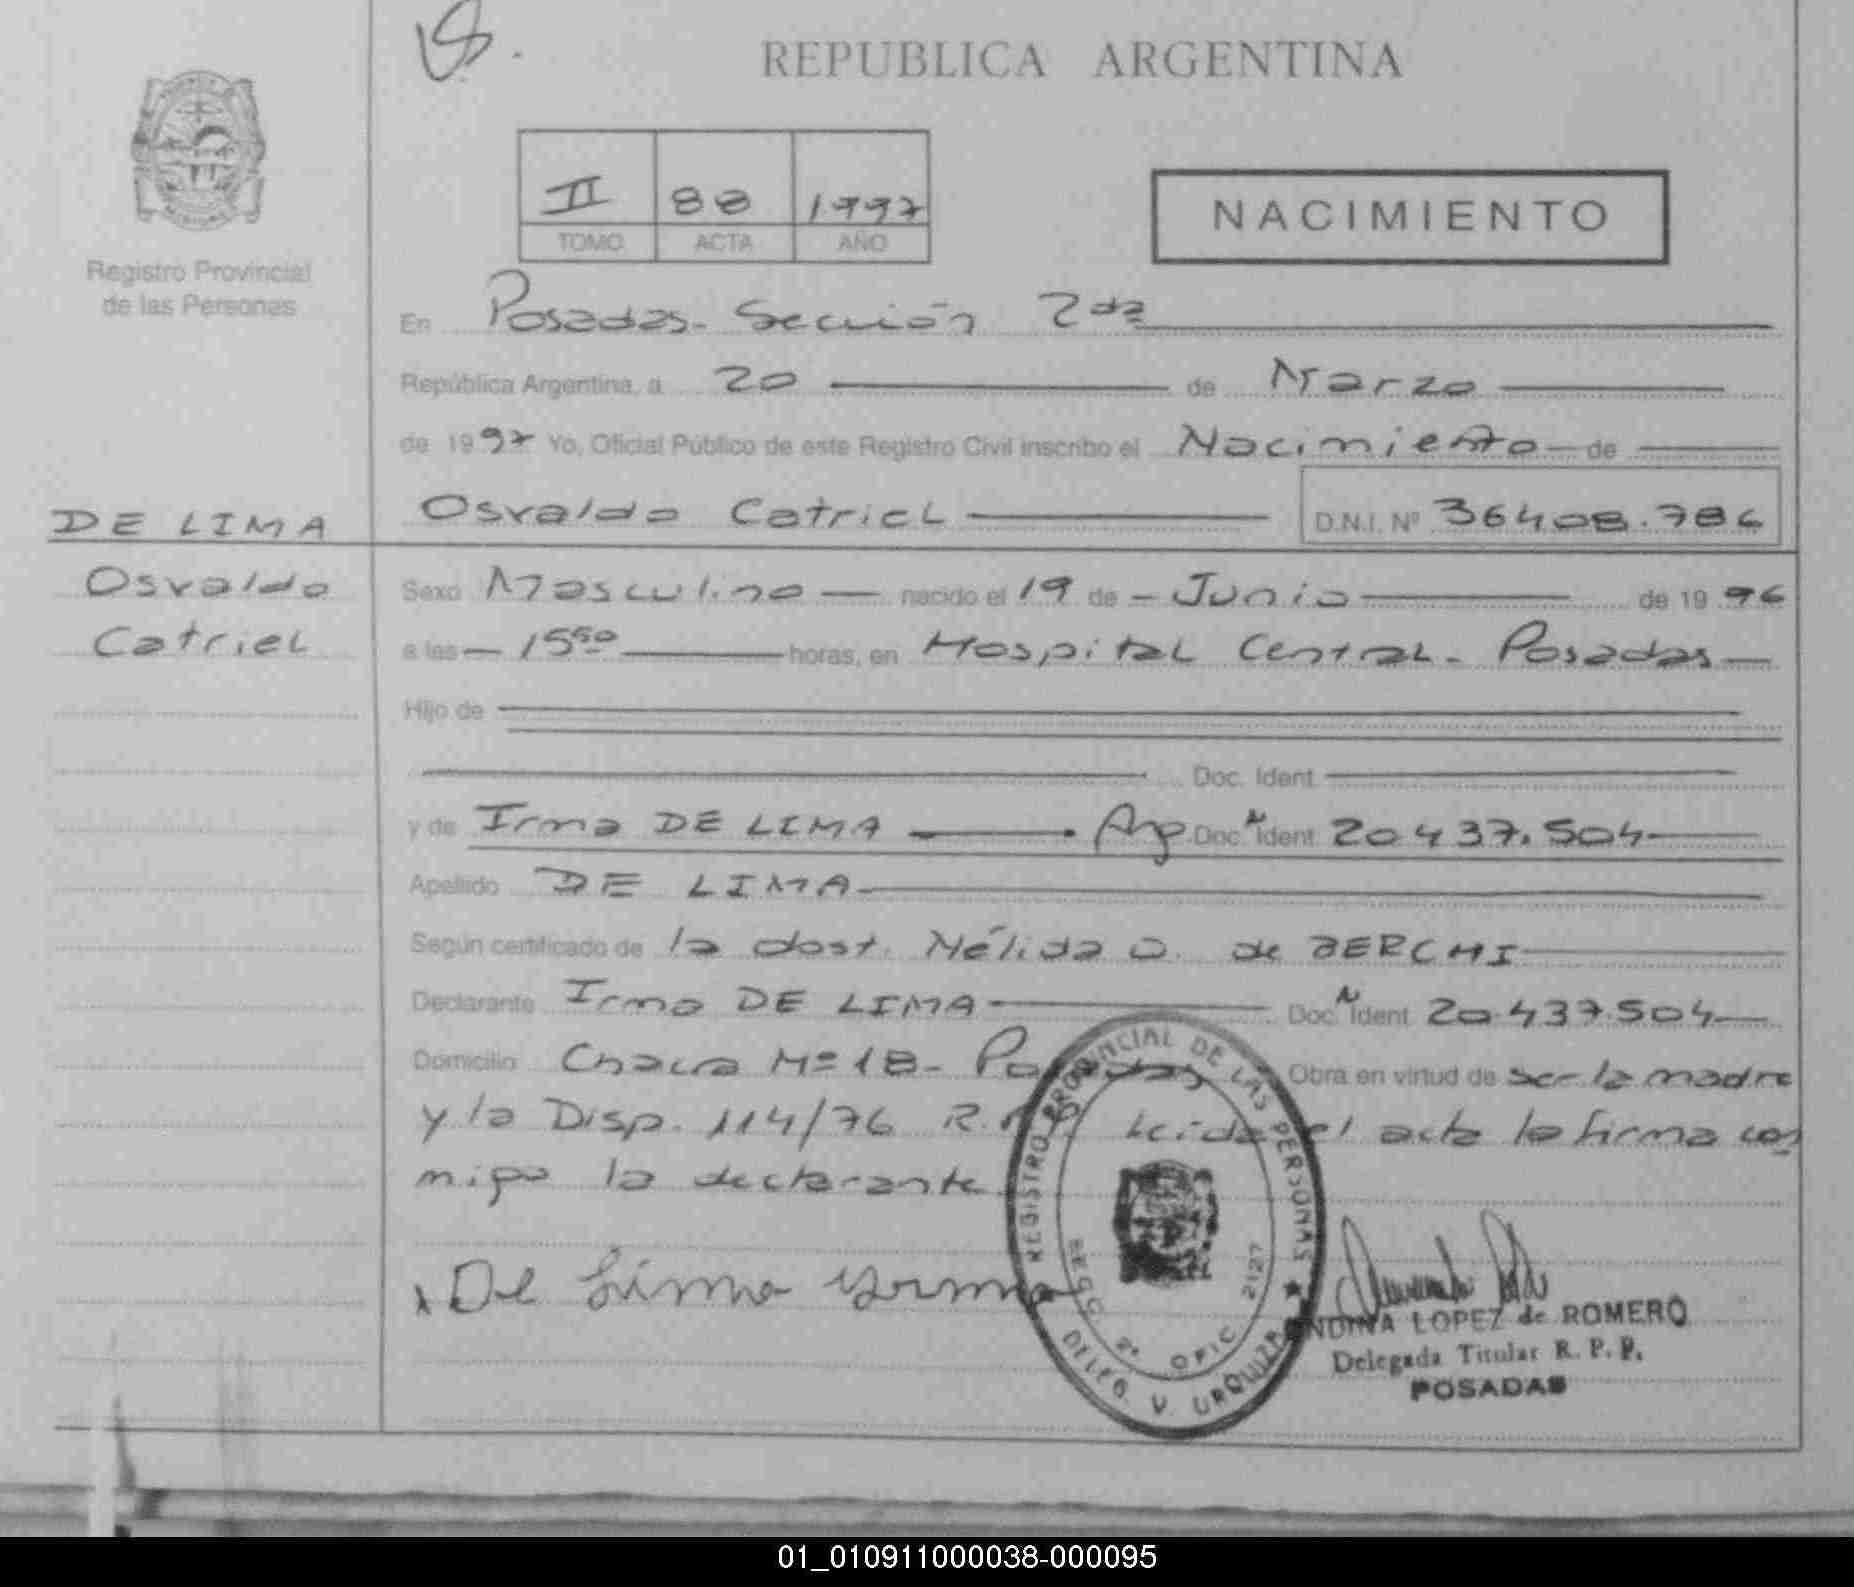 REPUBLICA ARGENTINA
II 88 1997
TOMO ACTA AÑO
NACIMIENTO
Registro Provincial
de las Personas
En Posadas. Sección 2da
República Argentina, a 20 de Marzo
de 1997 Yo, Oficial Público de este Registro Civil inscribo el Nacimiento de
Osvaldo Catriel D.N.I. Nº 36408.786
DE LIMA
Osvaldo
Catriel
Sexo Masculino nacido el 19 de Junio de 1996
a las 15 50 horas, en Hospital Central. Posadas
Hijo de
Doc. Ident
y de Irma DE LIMA Arg. Doc. Ident 20437.504
Apellido DE LIMA
Según certificado de la obst. Nélida O. de BERCHI
Declarante Irma DE LIMA Doc. Ident 20.437.504
Domicilio Chacra Nº 18- Posadas Obra en virtud de ser la madre
y la Disp. 114/76 R. Leida el acta la firma con
migo la declarante
De Lima Yrma
REGISTRO PROVINCIAL DE LAS PERSONAS
SECC 2ª OFIC 2127
DELEG. V. URQUIZA
LOPEZ de ROMERO
Delegada Titular R. P. P.
POSADAS
01_010911000038-000095